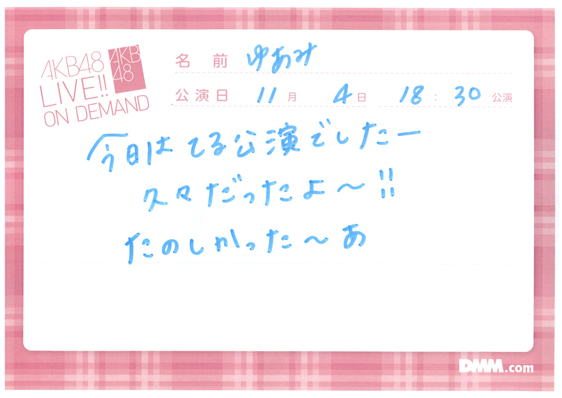 AKB48
LIVE!!
ON DEMAND
AKB
48
名前 ゆあみ
公演日 11月 4日 18:30 公演
今日は てる公演でしたー
久々だったよ〜!!
たのしかった〜あ
DMM.com